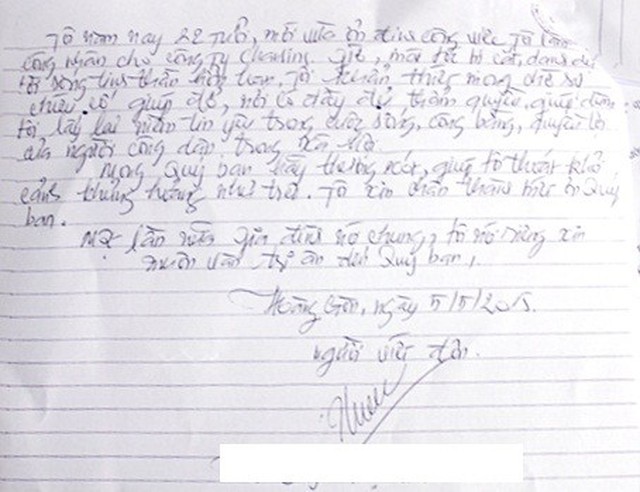 Tôi năm nay 22 tuổi, mới vừa ổn định công việc Tôi làm
công nhân cho công ty
đời sống tinh thần Tôi khẩn thiết mong được sự
chiếu cố giúp đỡ, nơi có đầy đủ thẩm quyền, giúp dùm
tôi, lấy lại niềm tin yêu trong cuộc sống, công bằng, quyền lợi
của người công dân trong xã hội.
Mong Quý ban hãy thương xót, giúp tôi thoát khỏi
cảnh như trên. Tôi xin chân thành biết ơn Quý
ban.
Một lần nữa gia đình nói chung, tôi nói riêng xin
muôn vàn ơn Quý ban.
ngày 5/5/2015.
Người viết đơn.